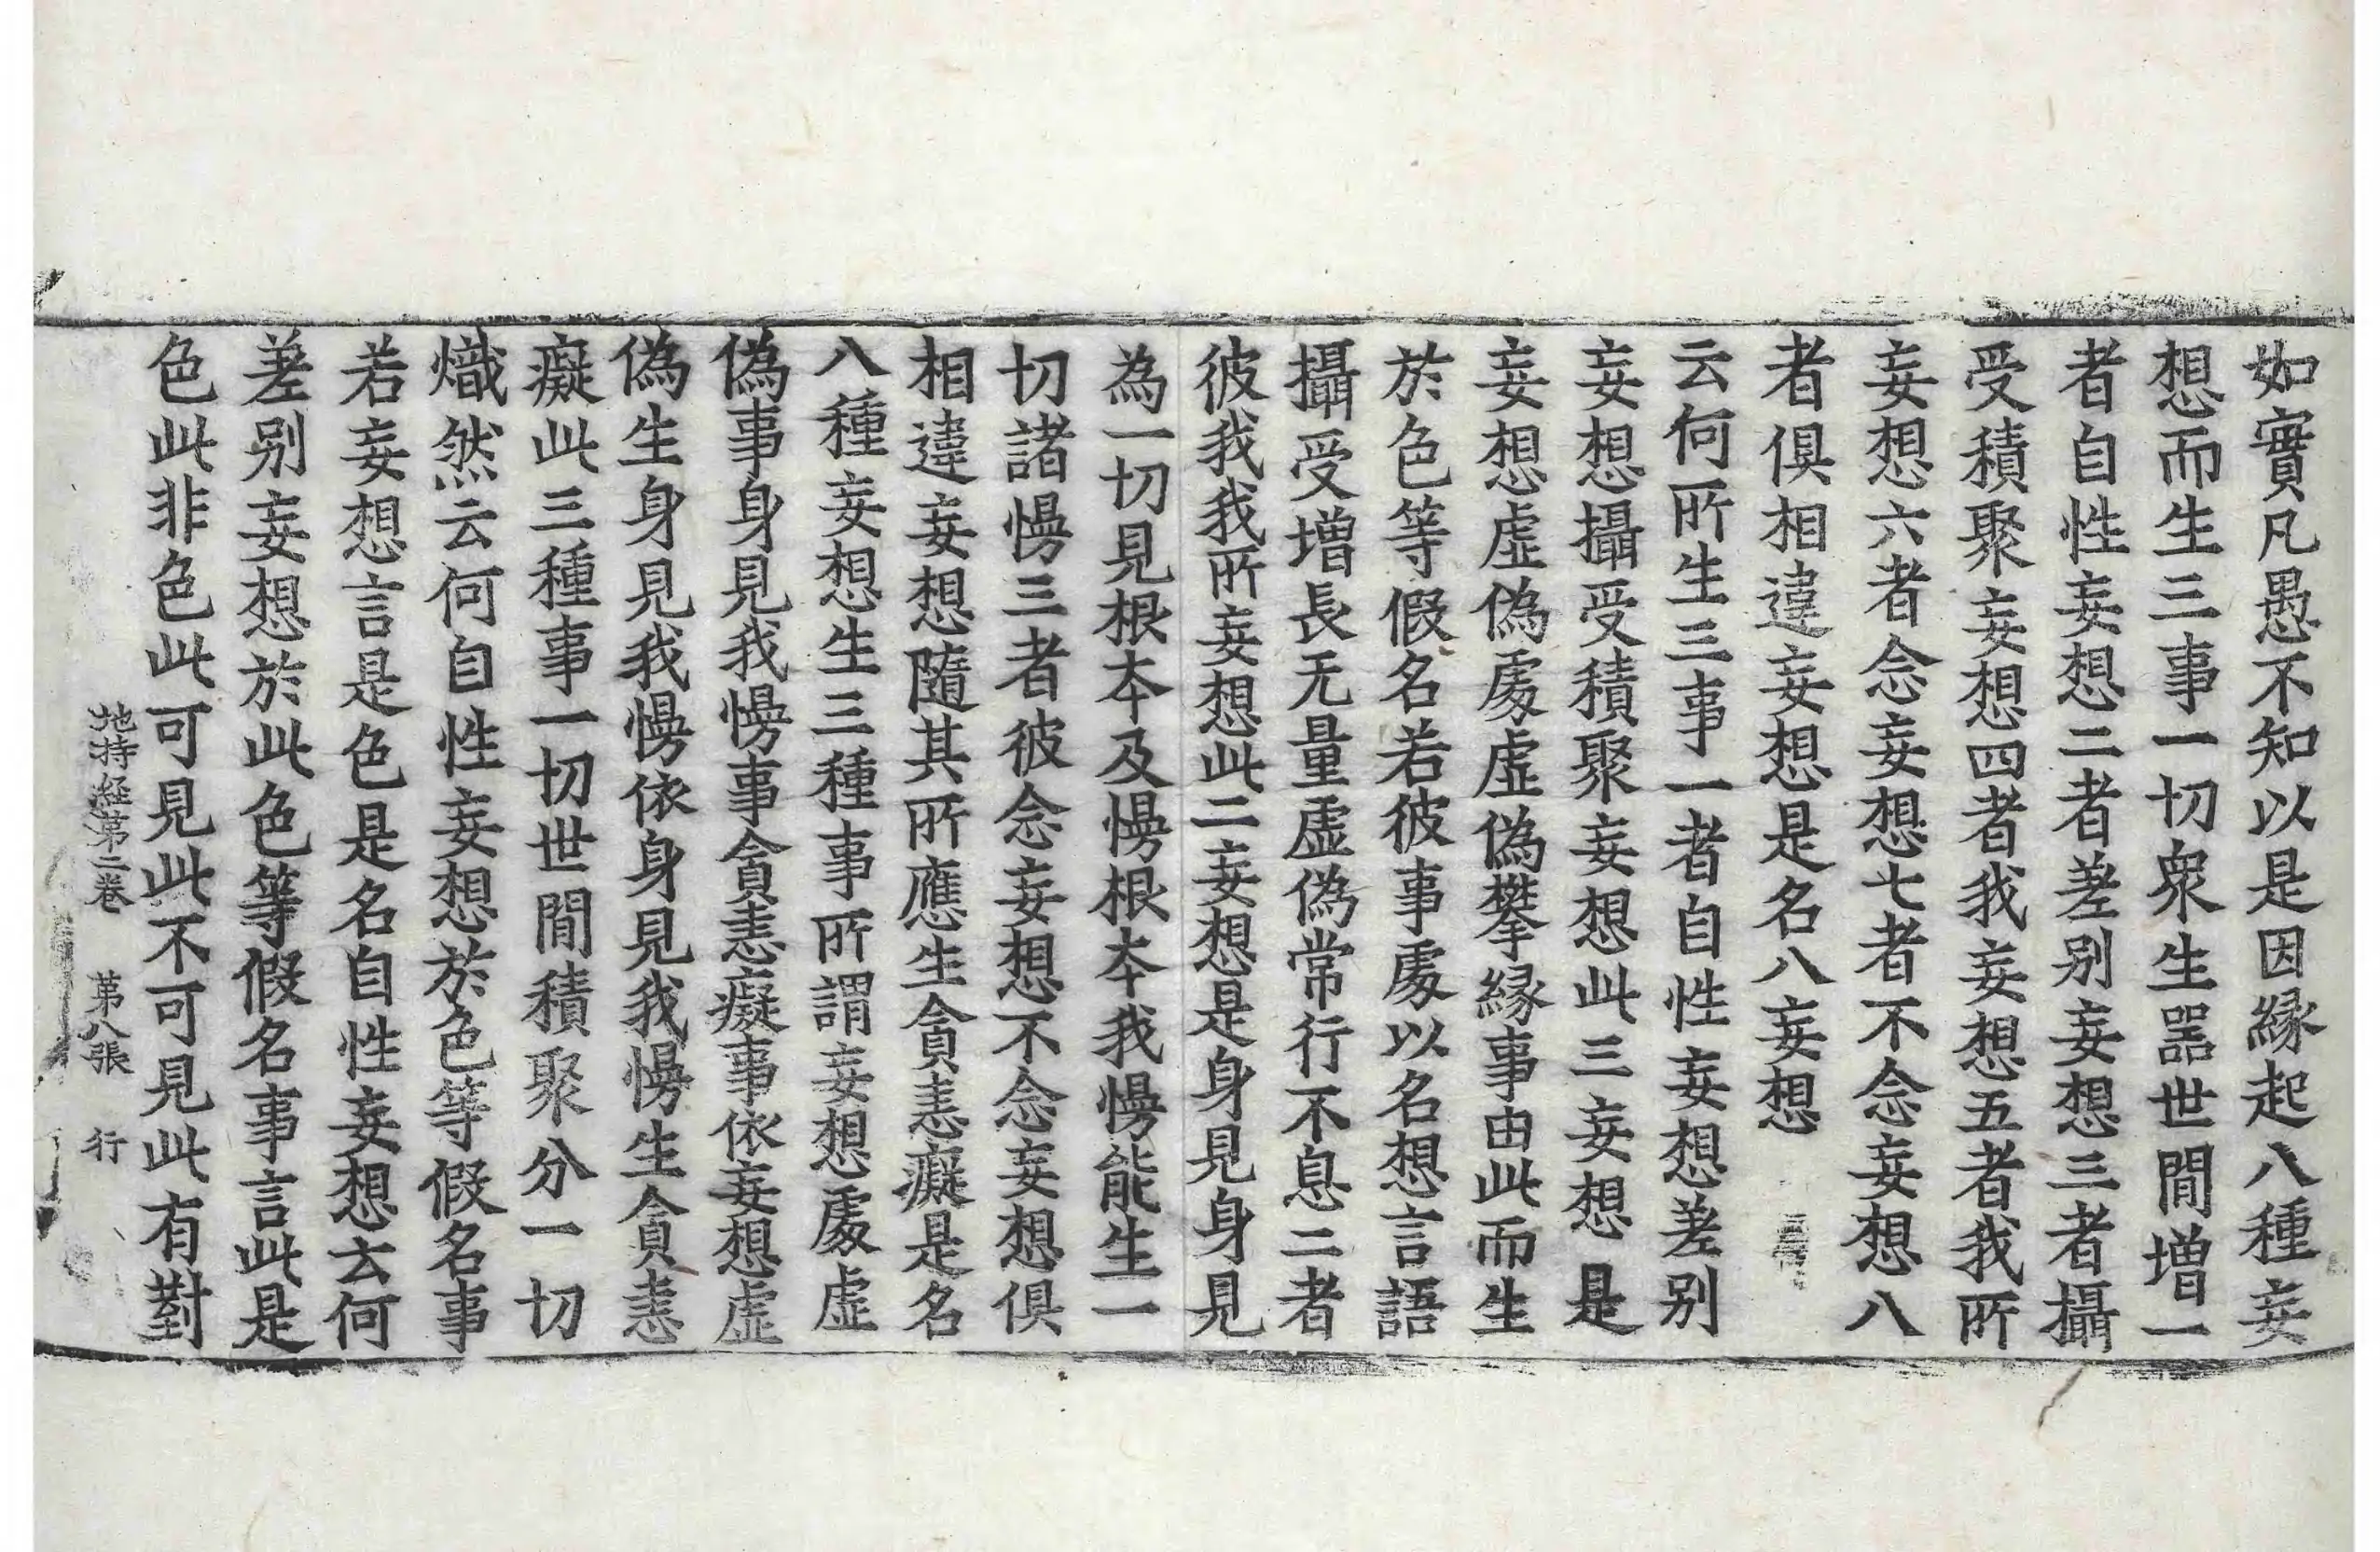 如實凡愚不知以是因縁起八種妄
想而生三事一切衆生噐世間増一
者自性妄想二者差别妄想三者攝
受積聚妄想四者我妄想五者我所
妄想六者念妄想七者不念妄想八
者俱相違妄想是名八妄想
云何所生三事一者自性妄想差别
妄想攝受積聚妄想此三妄想是
妄想虛偽處虛偽攀縁事由此而生
於色等假名若彼事處以名想言語
攝受增長无量虛偽常行不息二者
彼我我所妄想此二妄想是身見身見
為一切見根夲及慢根夲我慢能生一
切諸慢三者彼念妄想不念妄想俱
相違妄想隨其所應生貪恚癡是名
八種妄想生三種事所謂妄想處虛
偽事身見我慢事貪恚癡事依妄想虛
偽生身見我慢依身見我慢生貪恚
癡此三種事一切世間積聚分一切
熾然云何自性妄想於色等假名事
若妄想言是色是名自性妄想云何
差别妄想於此色等假名事言此是
色此非色此可見此不可見此有對
地持経苐二卷　苐八張　行